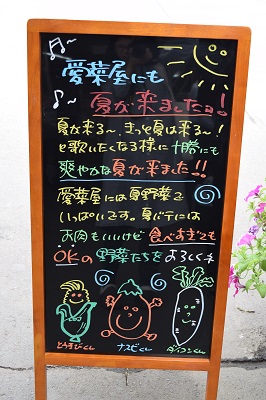 愛菜屋にも
夏が来ましたよ!
夏が来る〜、きっと夏は来る〜!
と歌いたくなる様に十勝にも
爽やかな夏が来ました!!
愛菜屋には夏野菜で
いっぱいです。夏バテには
お肉もいいけど食べすぎても
OKの野菜たちをよろしく
とうきびくん
ナスビくん
ダイコンくん